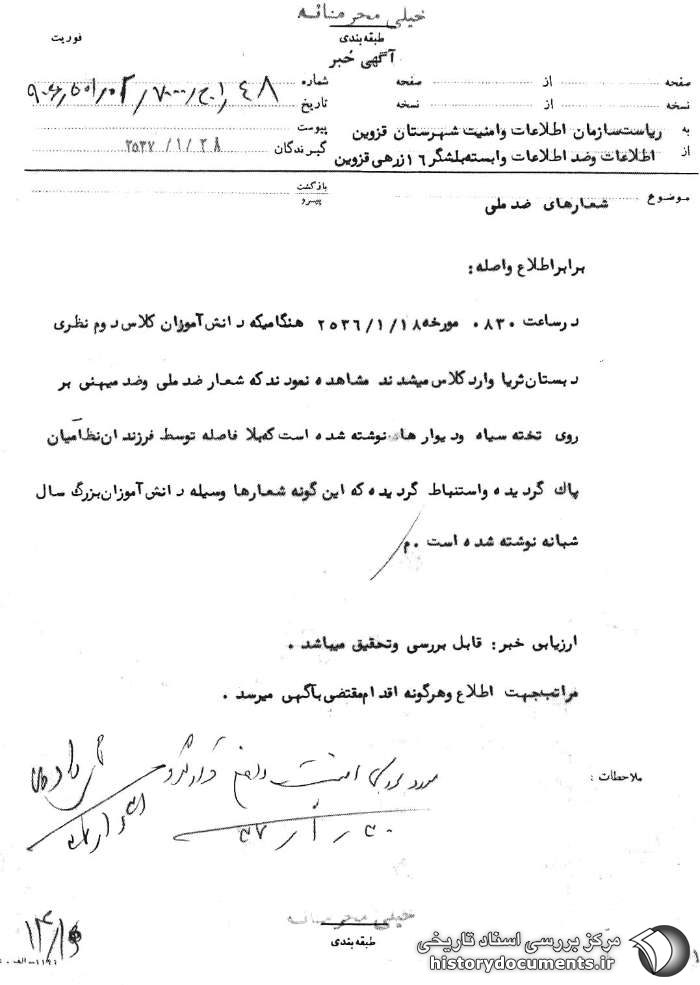 خیلی محرمانه
طبقه‌بندی
فوریت
آگهی خبر
صفحه از صفحه شماره
نسخه از نسخه تاریخ
به ریاست سازمان اطلاعات و امنیت شهرستان قزوین پیوست
از اطلاعات و ضد اطلاعات وابسته بلشگر ۱۶ زرهی قزوین گیرندگان ۲۵۳۷/۱/۲۸
موضوع شعارهای ضد ملی بازگشت
پیرو
برابر اطلاع واصله:
در ساعت ۰۸۳۰ مورخه ۲۵۳۶/۱/۱۸ هنگامیکه دانش‌آموزان کلاس دوم نظری
دبستان ثریا وارد کلاس میشدند مشاهده نمودند که شعار ضد ملی و ضد میهنی بر
روی تخته سیاه و دیوارهای نوشته شده است که بلا فاصله توسط فرزندان نظامیان
پاك گردیده و استنباط گردیده که این گونه شعارها وسیله دانش‌آموزان بزرگ سال
شبانه نوشته شده است . م
ارزیابی خبر: قابل بررسی و تحقیق میباشد .
مراتب جهت اطلاع و هرگونه اقدام مقتضی بآگهی میرسد .
ملاحظات :
خیلی محرمانه
طبقه‌بندی
مرکز بررسی اسناد تاریخی
historydocuments.ir